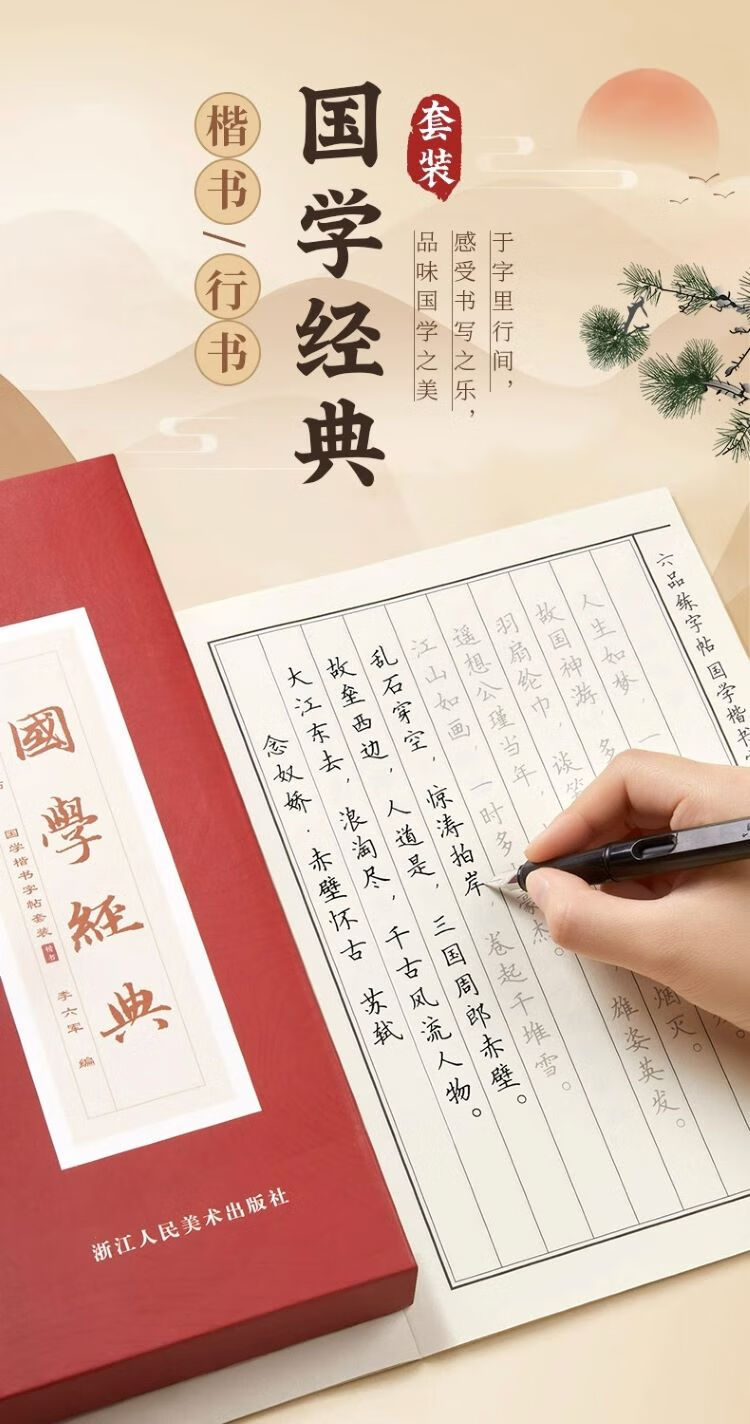 套装
国学经典
楷书/行书
于字里行间，
感受书写之乐，
品味国学之美
國學經典
国学楷书字帖套装 楷书
李六军 编
浙江人民美术出版社
六品练字帖 国学楷书
念奴娇·赤壁怀古 苏轼
大江东去，浪淘尽，千古风流人物。
故垒西边，人道是，三国周郎赤壁。
乱石穿空，惊涛拍岸，卷起千堆雪。
江山如画，一时多 豪杰。
遥想公瑾当年， 雄姿英发。
羽扇纶巾，谈笑 烟灭。
故国神游，多
人生如梦，一